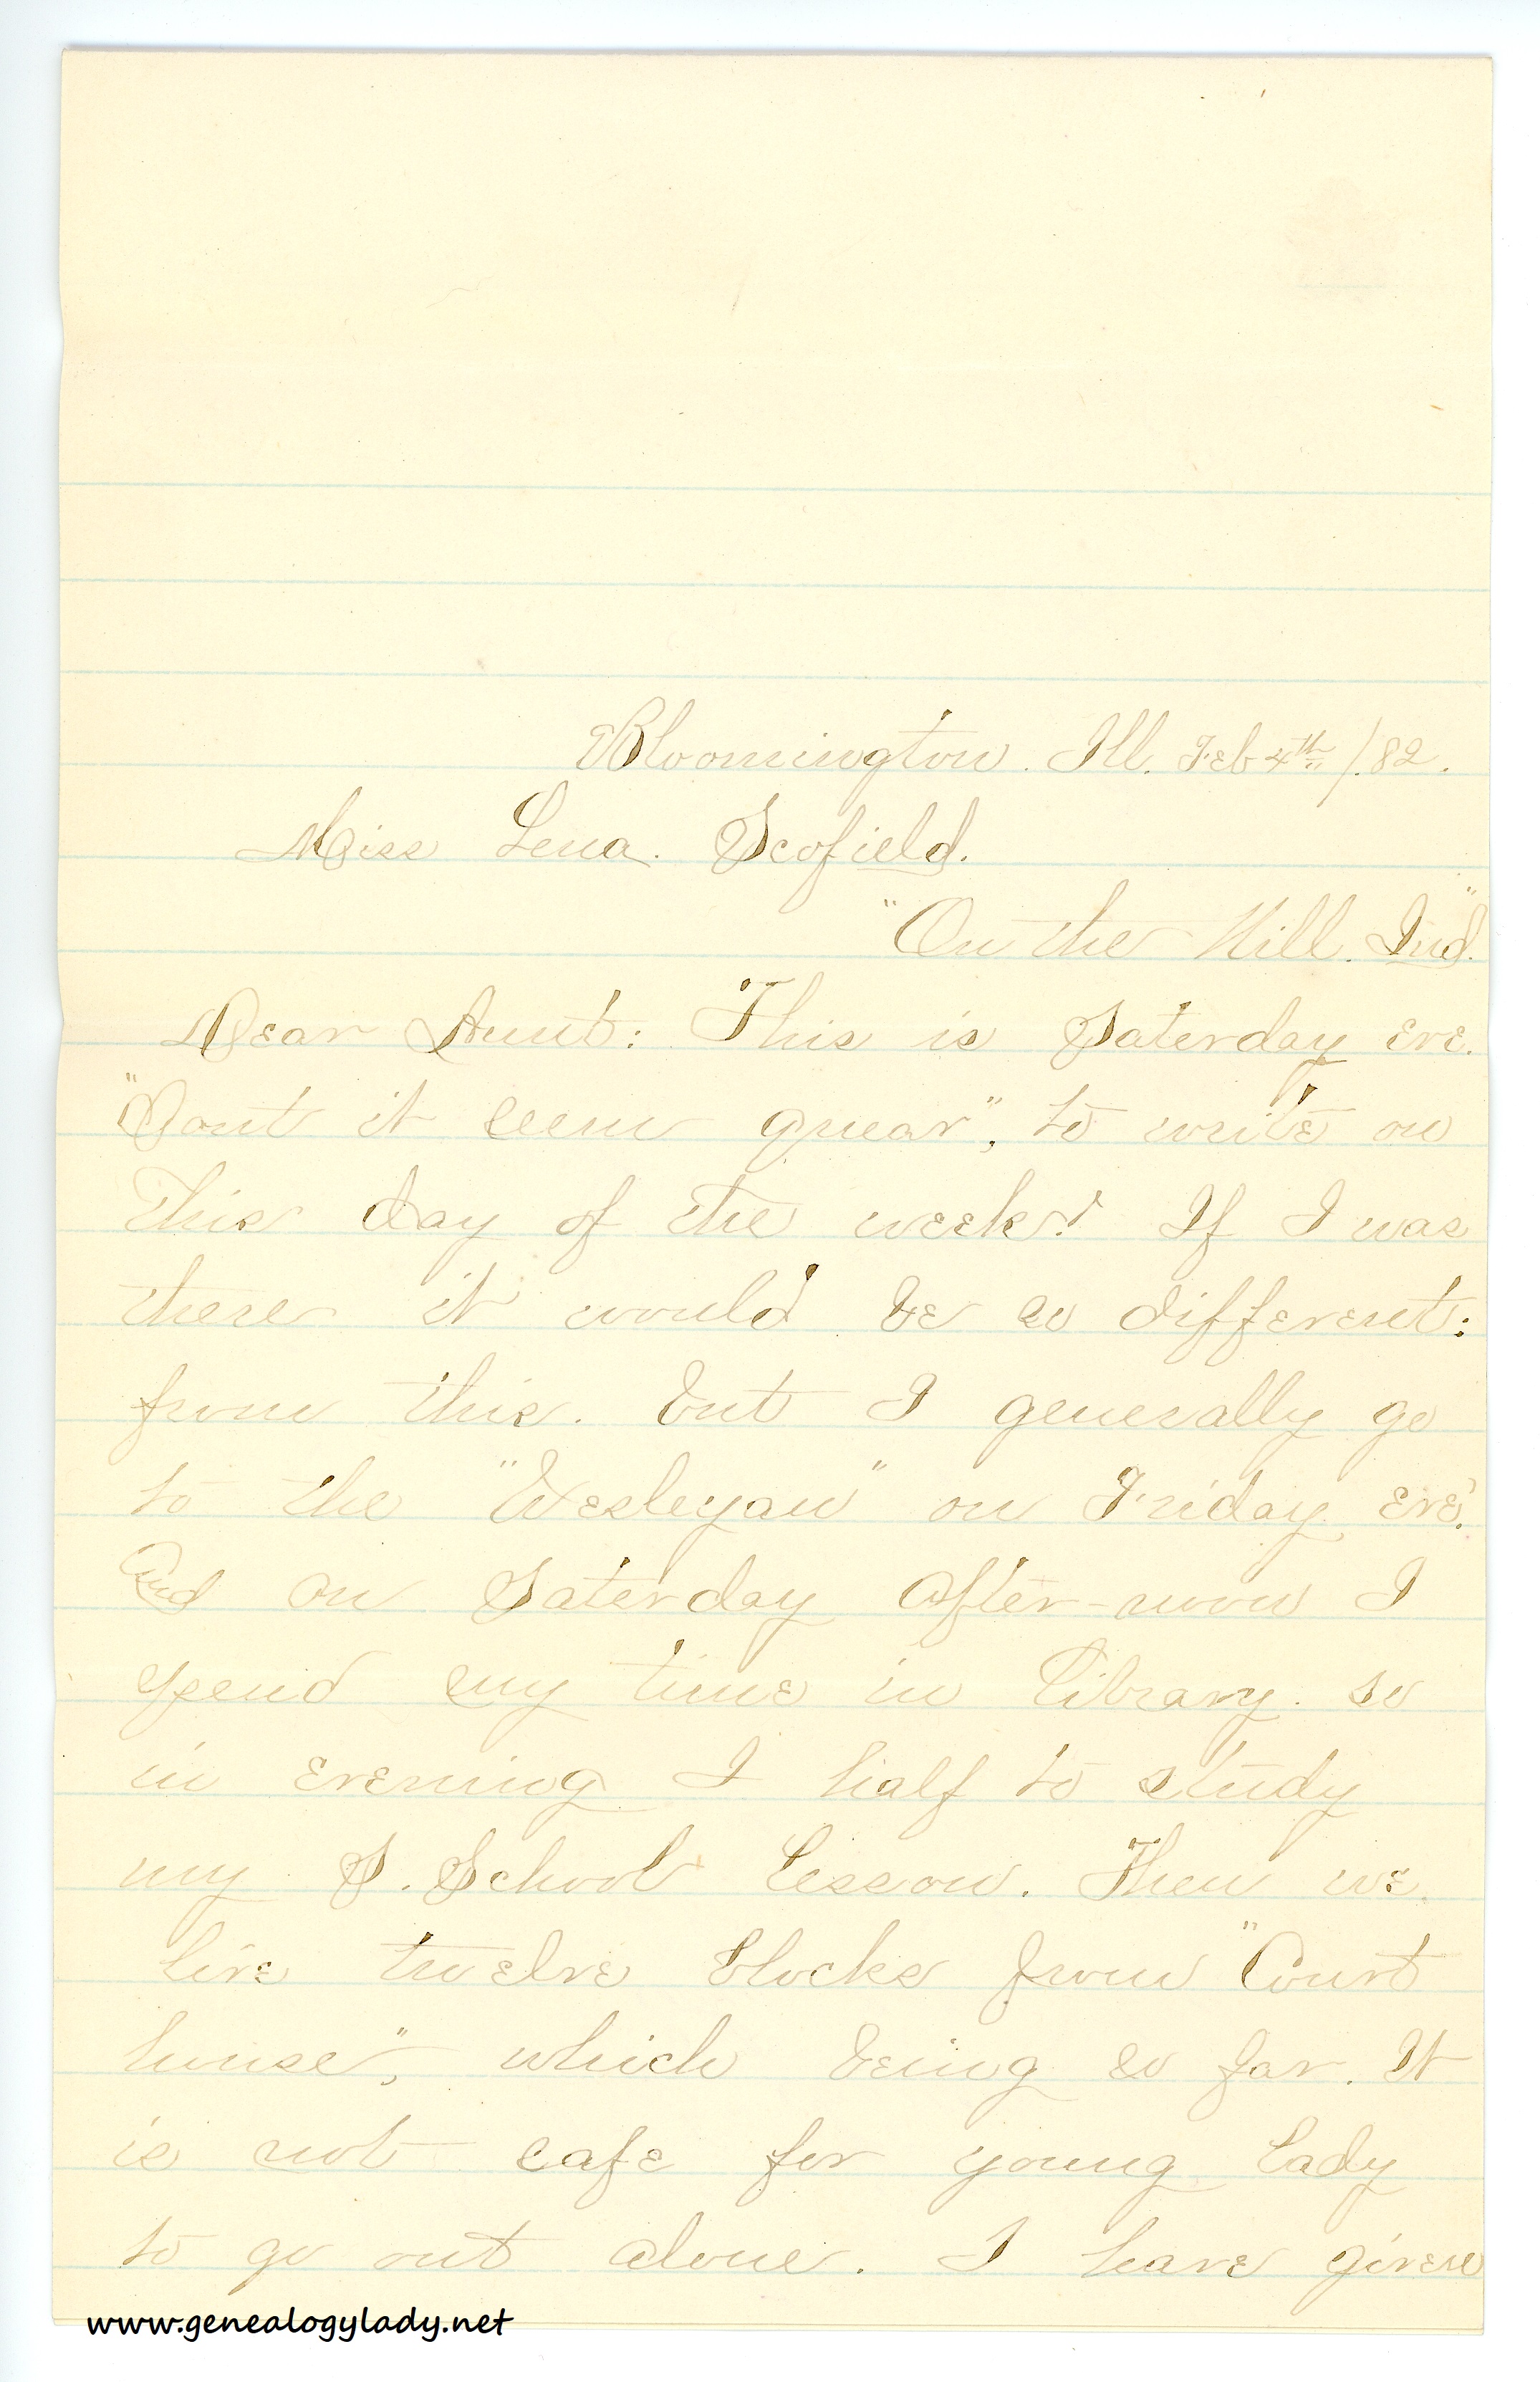 Bloomington. Ill. Feb 4th /.82.
Miss Lena. Scofield.
"On the Hill. Ind."
Dear Aunt: This is Saterday eve.
"Dont it seem quear", to write on
this day of the week! If I was
there it would be so different:
from this. but I generally go
to the "Wesleyan" on Friday eve'.
And on Saterday after-noon I
spend my time in library. so
in evening I half to study
my S. School lesson. Then we
live twelve blocks from "Court
house", which being so far. It
is not safe for young lady
to go out alone. I have given
www.genealogylady.net